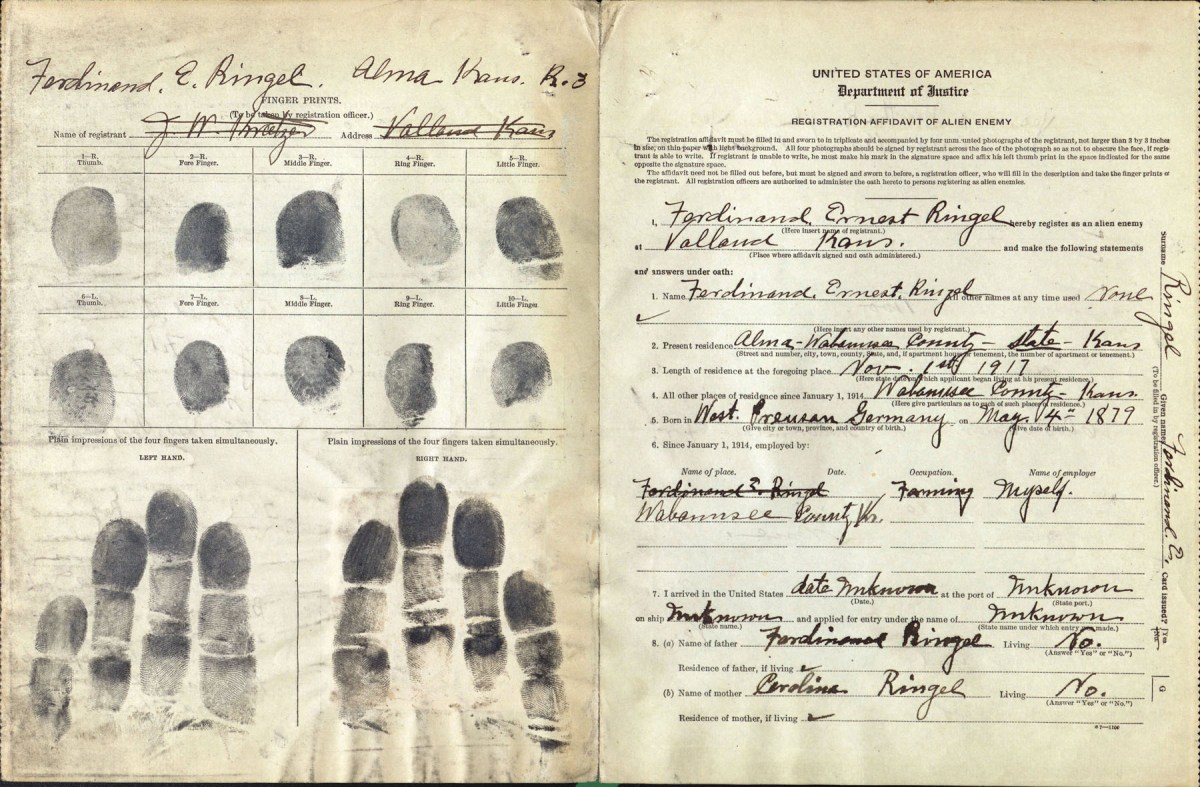 Ferdinand. E. Ringel. Alma Kans. R. 3
FINGER PRINTS.
(To be taken by registration officer.)
Name of registrant J. W. Address Volland Kans
1—R. Thumb. 2—R. Fore Finger. 3—R. Middle Finger. 4—R. Ring Finger. 5—R. Little Finger.
6—L. Thumb. 7—L. Fore Finger. 8—L. Middle Finger. 9—L. Ring Finger. 10—L. Little Finger
Plain impressions of the four fingers taken simultaneously. Plain impressions of the four fingers taken simultaneously.
LEFT HAND. RIGHT HAND.
UNITED STATES OF AMERICA
Department of Justice
REGISTRATION AFFIDAVIT OF ALIEN ENEMY
The registration affidavit must be filled in and sworn to in triplicate and accompanied by four unmounted photographs of the registrant, not larger than 3 by 3 inches
in size, on thin paper with light background. All four photographs should be signed by registrant across the face of the photograph so as not to obscure the face, if regis-
trant is able to write. If registrant is unable to write, he must make his mark in the signature space and affix his left thumb print in the space indicated for the same
opposite the signature space.
The affidavit need not be filled out before, but must be signed and sworn to before, a registration officer, who will fill in the description and take the finger prints of
the registrant. All registration officers are authorized to administer the oath hereto to persons registering as alien enemies.
I, Ferdinand. Ernest Ringel hereby register as an alien enemy
(Here insert name of registrant.)
at Volland Kans. and make the following statements
(Place where affidavit signed and oath administered.)
and answers under oath:
1. Name Ferdinand. Ernest. Ringel All other names at any time used None
(Here insert any other names used by registrant.)
2. Present residence Alma - Wabaunsee County - State - Kans
(Street and number, city, town, county, State, and, if apartment house or tenement, the number of apartment or tenement.)
3. Length of residence at the foregoing place Nov. 1st 1917
(Here state date on which applicant began living at his present residence.)
4. All other places of residence since January 1, 1914 Wabaunsee County - Kans.
(Here give particulars as to each of such places of residence.)
5. Born in West. Preusan Germany on May. 4th 1879
(Give city or town, province, and country of birth.) (Give date of birth.)
6. Since January 1, 1914, employed by:
Name of place. Date. Occupation. Name of employer
Ferdinand E. Ringel Farming Myself.
Wabaunsee County Ks.
7. I arrived in the United States date Unknown at the port of Unknown
(Date.) (State port.)
on ship Unknown and applied for entry under the name of Unknown
(State name.) (State name under which entry was made.)
8. (a) Name of father Ferdinand Ringel Living No.
(Answer "Yes" or "No.")
Residence of father, if living
(b) Name of mother Carolina Ringel Living No.
(Answer "Yes" or "No.")
Residence of mother, if living
Surname Ringel Given name Ferdinand. E. Card issued? Yes No
(To be filled in by registration officer.)
G